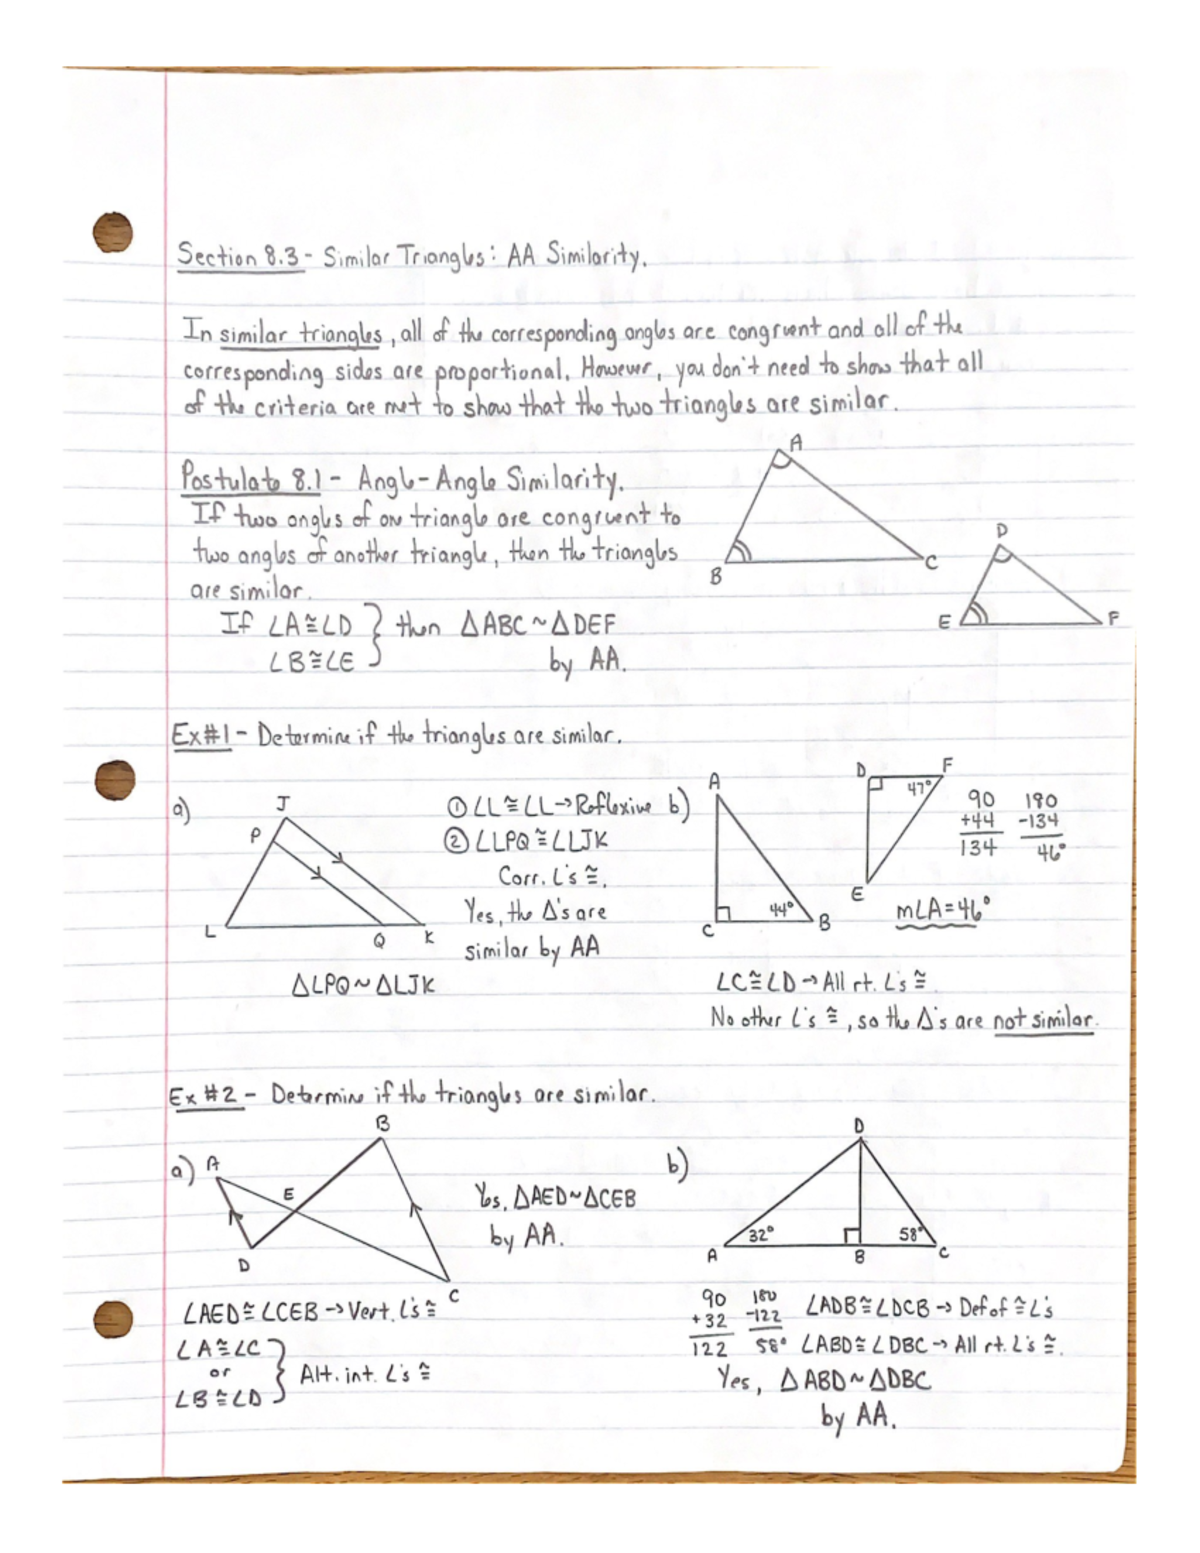 Section 8.3 - Similar Triangles: AA Similarity.
In similar triangles, all of the corresponding angles are congruent and all of the
corresponding sides are proportional. However, you don't need to show that all
of the criteria are met to show that the two triangles are similar.
Postulate 8.1 - Angle-Angle Similarity.
If two angles of one triangle are congruent to
two angles of another triangle, then the triangles
are similar.
If ∠A≅∠D } then △ABC ~ △DEF
∠B≅∠E
by AA.
A
B
C
D
E
F
Ex#1 - Determine if the triangles are similar.
a)
J
P
L
Q
K
① ∠L≅∠L → Reflexive
② ∠LPQ≅∠LJK
Corr. ∠'s ≅.
Yes, the △'s are
similar by AA
△LPQ ~ △LJK
b)
A
C
44°
B
D
F
47°
E
90
+44
134
180
-134
46°
m∠A=46°
∠C≅∠D → All rt. ∠'s ≅
No other ∠'s ≅, so the △'s are not similar.
Ex #2 - Determine if the triangles are similar.
a)
A
B
E
D
C
Yes, △AED~△CEB
by AA.
∠AED≅∠CEB → Vert. ∠'s ≅
∠A≅∠C
or
∠B≅∠D
} Alt. int. ∠'s ≅
b)
D
32°
58°
A
B
C
90
+32
122
180
-122
58°
∠ADB≅∠DCB → Def of ≅ ∠'s
∠ABD≅∠DBC → All rt. ∠'s ≅.
Yes, △ABD ~ △DBC
by AA.